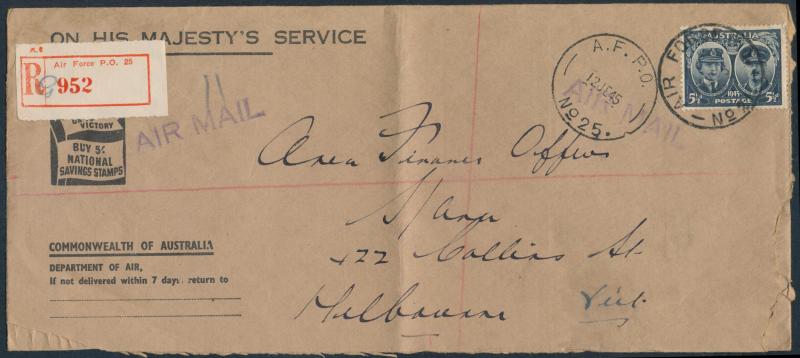 ON HIS MAJESTY'S SERVICE
A.6
Air Force P.O. 25
R 952
VICTORY
BUY 5/-
NATIONAL
SAVINGS STAMPS
AIR MAIL
A.F.P.O.
12JE45
No 25.
AIR MAIL
AIR FOR
No
AUSTRALIA
1945
5½ POSTAGE 5½
Area Finance Officer
422 Collins St
Melbourne Vict.
COMMONWEALTH OF AUSTRALIA
DEPARTMENT OF AIR,
If not delivered within 7 days return to